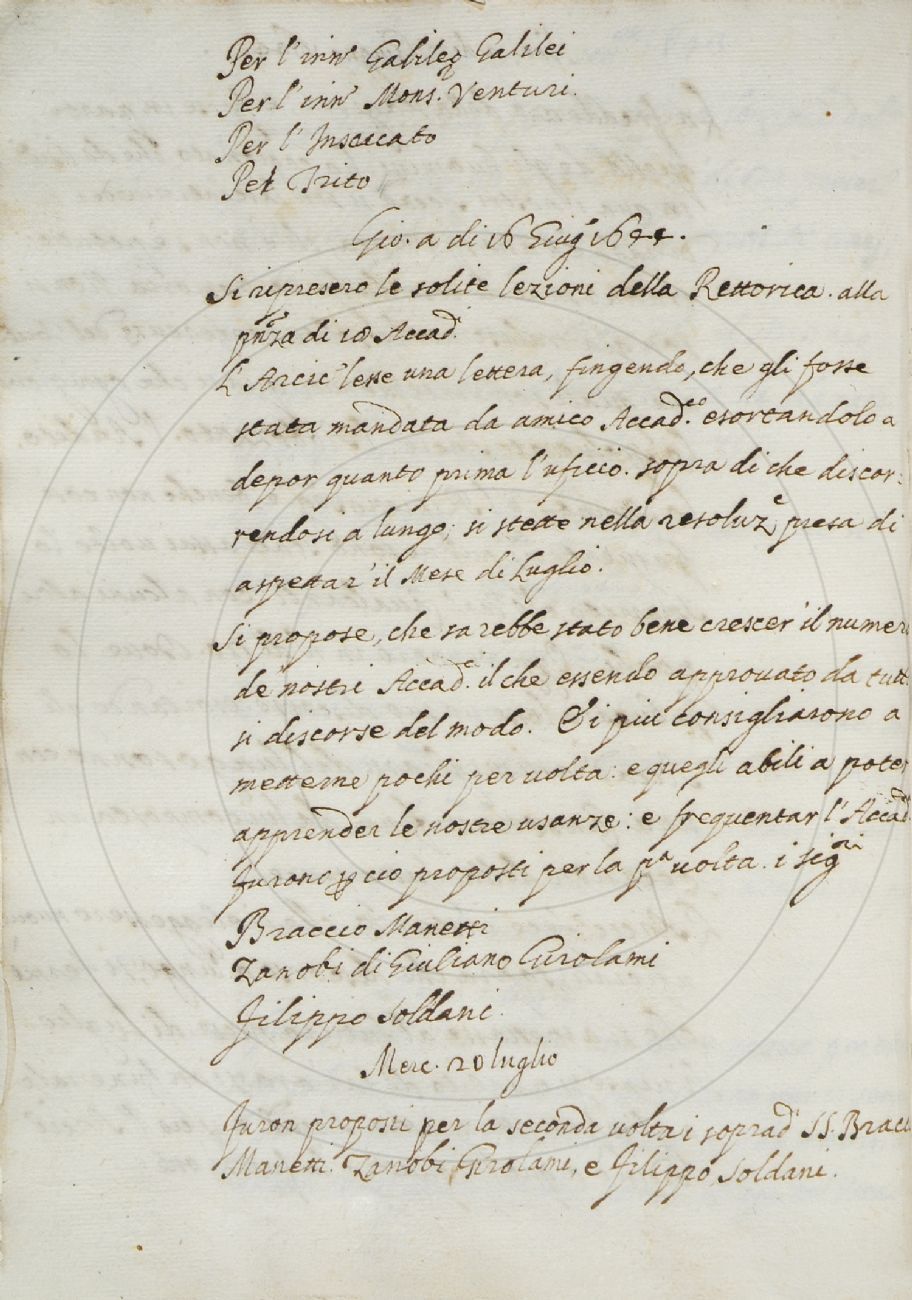 Per l'inn.o Galileo Galilei
Per l'inn.o Mons. Venturi.
Per l'Insacato
Pel Trito
Gio. a di 16 Giug.o 1644.
Si ripresero le solite lezioni della Rettorica. alla
pnza di 18 Accad.i
L'Arcic.o lesse una lettera, fingendo, che gli fosse
stata mandata da amico Accad.co esortandolo a
depor quanto prima l'uficio. sopra di che discor:
rendosi a lungo, si stette nella resoluz.e presa di
aspettar' il Mese di Luglio.
Si propose, che sarebbe stato bene crescer' il numero
de' nostri Accad.ci il che essendo approvato da tutt
si discorse del modo. E i più consigliarono a
metterne pochi per volta: e quegli abili a poter
apprender le nostre usanze: e frequentar l'Accad.a
furono p cio proposti per la p.a volta i sig.ri
Braccio Manetti
Zanobi di Giuliano Girolami
Filippo Soldani.
Merc. 20 luglio
Furon proposti per la seconda volta i soprad.i SS. Bracc
Manetti. Zanobi Girolami, e Filippo Soldani.